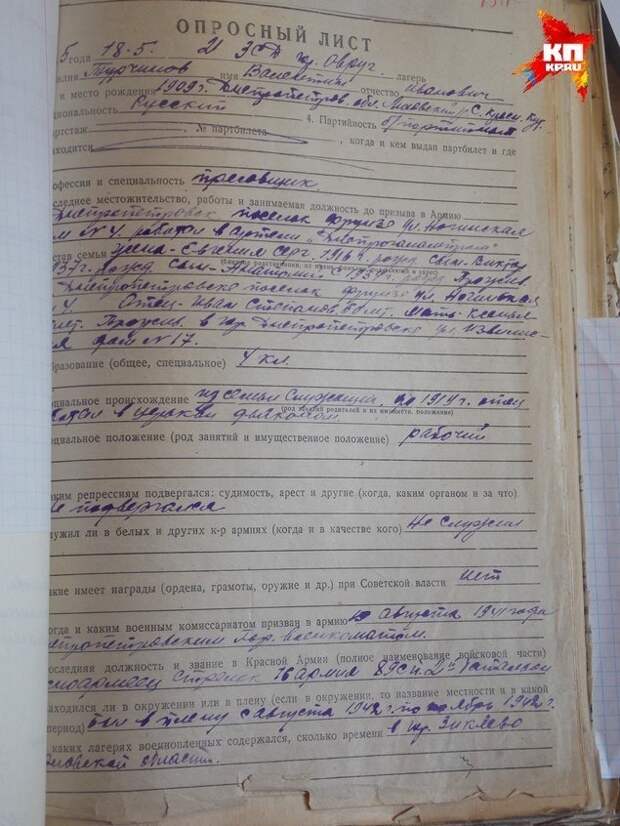 КП
KP.RU
ОПРОСНЫЙ ЛИСТ
5 года 18.5. 21 округ лагерь
илия имя Валентин отчество Иванович
и место рождения 1909 г. Днепропетров. обл.
циональность Русский 4. Партийность б/партийный
артстаж , № партбилета , когда и кем выдан партбилет и где
аходится
офессия и специальность
оследнее местожительство, работы и занимаемая должность до призыва в Армию
Днепропетровск поселок Фрунзе ул.
м № 4 работал в Артели
став семьи Жена - Евгения Серг. 1916 г. рожд. сын. Виктор
1937 г. рожд. сын - Анатолий рожд. Прожив
Днепропетровске поселок Фрунзе ул.
№ 4 Отец - Иван Степанов. мать - Ксенья
лет. Прожив. в гор. Днепропетровске ул.
я дом № 17.
бразование (общее, специальное) 4 кл.
оциальное происхождение из семьи служащих, до 1914 г. отец
(род занятий родителей и их имуществ. положение)
ботал в церкви дьяконом
оциальное положение (род занятий и имущественное положение) рабочий
аким репрессиям подвергался: судимость, арест и другие (когда, каким органом и за что)
Не подвергался
лужил ли в белых и других к-р армиях (когда и в качестве кого) Не служил
акие имеет награды (ордена, грамоты, оружие и др.) при Советской власти нет
огда и каким военным комиссариатом призван в армию августа 1941 года
непропетровским Гор. военкоматом.
оследняя должность и звание в Красной Армии (полное наименование войсковой части)
асноармеец Стрелок армия 2й батальон
аходился ли в окружении или в плену (если в окружении, то название местности и в какой
период) был в плену с августа 1942 г. по ноябрь 1942 г.
каких лагерях военнопленных содержался, сколько времени в гор.
области.